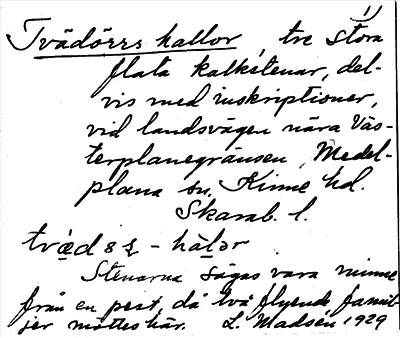 1)
Tvädörrs hallor tre stora
flata kalkstenar, del-
vis med inskriptioner,
vid landsvägen nära Väs-
terplanegränsen, Medel-
plana sn. Kinne hd.
Skarab. l.
Stenarna sägas vara minne
från en pest, då två flyende famil-
jer möttes här. L. Madsén 1929